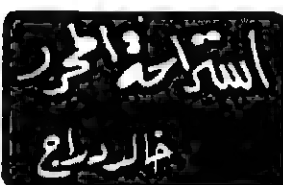 استراحة المحرر
خالد دراج